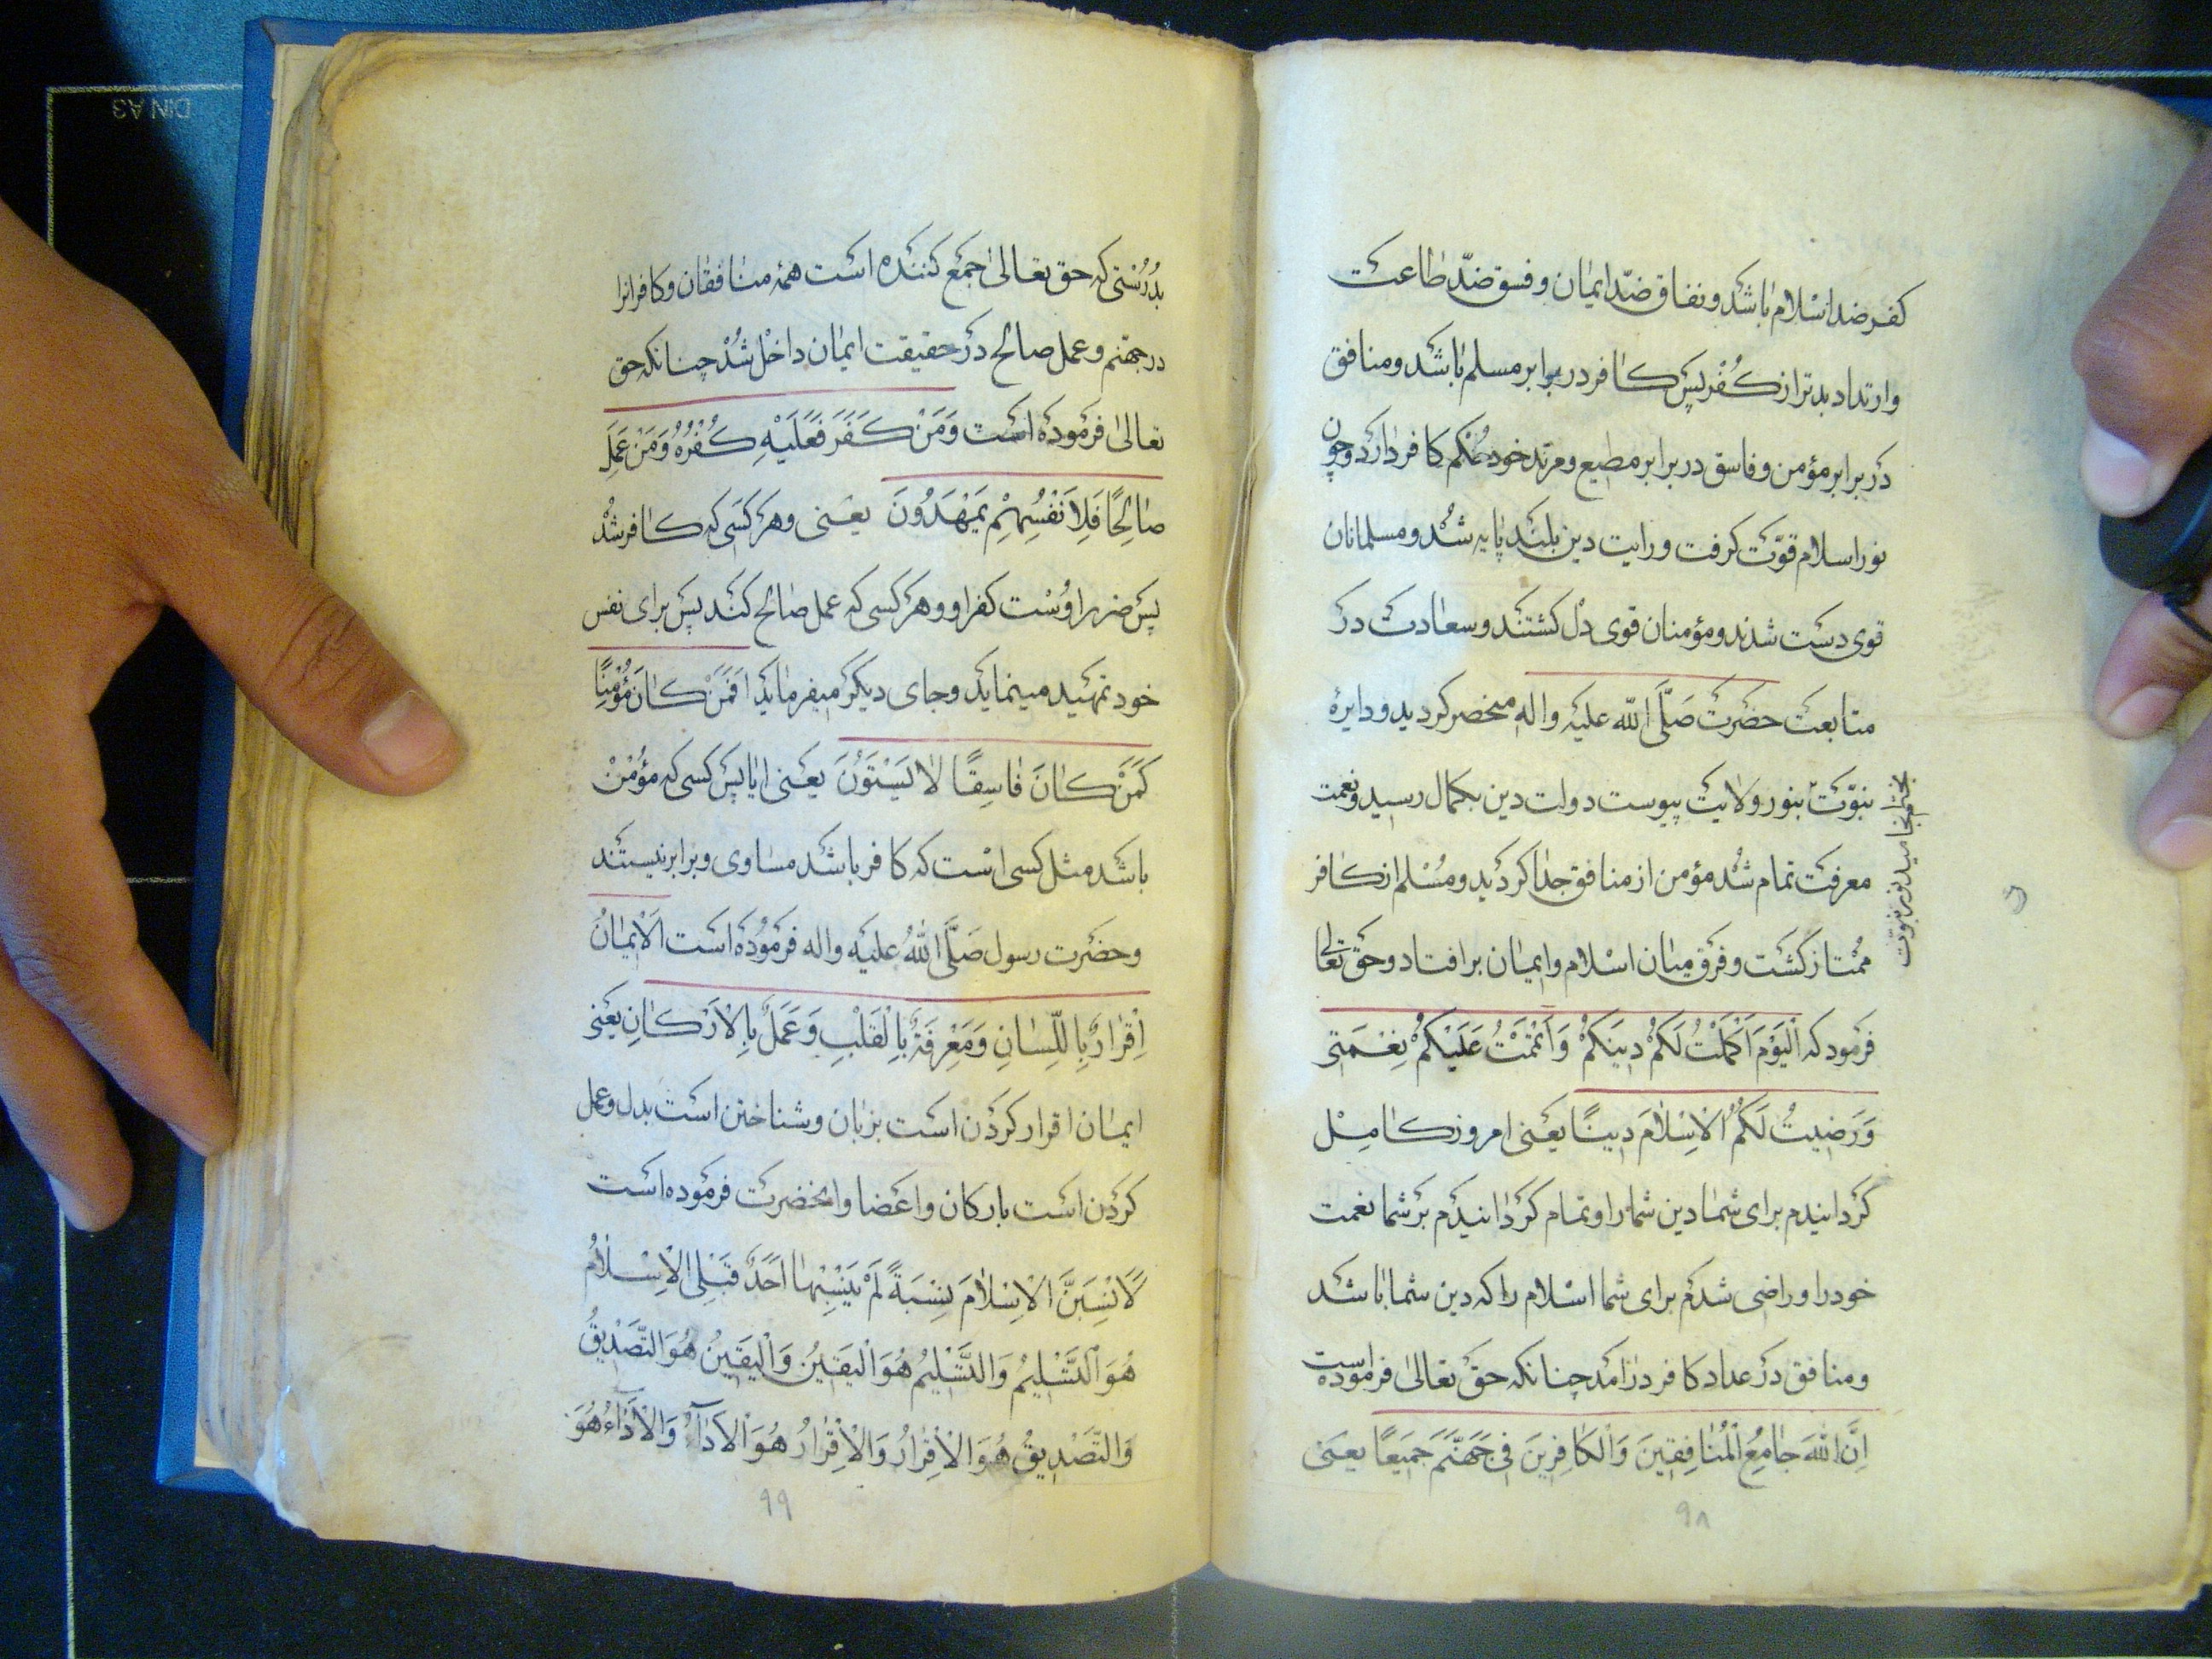 كفر ضد اسْلام باشد و نفاق ضدّ ایمان و فسق ضدّ طاعت
و ارتداد بدتر از كُفْر پس كافر در برابر مسلم باشد و منافق
در برابر مؤمن و فاسق در برابر مطیع و مرتد خود حُكم كافر دارد و چون
نور اسلام قوّت كرفت و رایت دین بلند پایه شد و مسلمانان
قوی دست شدند و مؤمنان قوی دل كشتند و سعادت در
متابعت حضرت صَلَّی الله علیه واله منحصر كردید و دایرهٔ
نبوّت بنور ولایت پیوست دولت دین بكمال رسید و نعمت
معرفت تمام شد مؤمن از منافق جدا كردید و مُسْلم از كافر
ممُتاز كشت و فرق میان اسْلام و ایمان بر افتاد و حق تعالی
فرمود كه اَلْیَوْمَ اَكْمَلْتُ لَكُمْ دینَكُمْ وَ اَتْمَمْتُ عَلَیْكُمْ نِعْمَتی
وَ رَضیتُ لَكُمُ الْاِسْلامَ دیناً یعنی امروز كامِل
كردانیدم برای شما دین شما را و تمام كردانیدم بر شما نعمت
خود را و راضی شدم برای شما اسْلام را كه دین شما باشد
و منافق در عداد كافر درآمد چنانكه حق تعالی فرموده است
اِنَّ اللهَ جامِعُ الْمُنافِقینَ وَ الْكافِرینَ فی جَهَنَّمَ جَمیعًا یعنی
۹۸
بدُرُسْتی كه حق تعالی جمع كننده است همهٔ منافقان و كافرانرا
در جهنّم و عمل صالح در حقیقت ایمان داخل شُدْ چنانكه حق
تعالی فرموده است وَ مَنْ كَفَرَ فَعَلَیْهِ كُفْرُهُ وَ مَنْ عَمِلَ
صالِحًا فَلِاَنْفُسِهِمْ یَمْهَدُونَ یعنی و هر كسی كه كافر شُدْ
پس ضرر اوُسْت كفر او و هر كسی كه عمل صالح كند پس برای نفس
خود تمهید مینماید و جای دیكر میفرماید اَفَمَنْ كانَ مُؤْمِنًا
كَمَنْ كانَ فاسِقًا لا یَسْتَوُنَ یعنی ایا پس كسی كه مؤمن
باشد مثل كسی است كه كافر باشد مساوی و برابر نیستند
و حضرت رسول صَلَّی اللهُ علیه واله فرموُده است اَلْایمانُ
اِقْرارٌ بِاللِّسانِ وَ مَعْرِفَةٌ بِالْقَلْبِ وَ عَمَلٌ بِالْاَرْكانِ یعنی
ایمان اقرار كردن است بزبان و شناختن است بدل و عمل
كردن است باركان و اعضا و انحضرت فرموده است
لَاَنْسِبَنَّ الْاِسْلامَ نِسْبَةً لَمْ یَنْسِبْها اَحَدٌ قَبْلِی الْاِسْلامُ
هُوَ التَّسْلیمُ وَ التَّسْلیمُ هُوَ الْیَقینُ وَ الْیَقینُ هُوَ التَّصْدیقُ
وَ التَّصْدیقُ هُوَ الْاِقْرارُ وَ الْاِقْرارُ هُوَ الْاَداءُ وَ الْاَداءُ هُوَ
۹۹
DIN A3